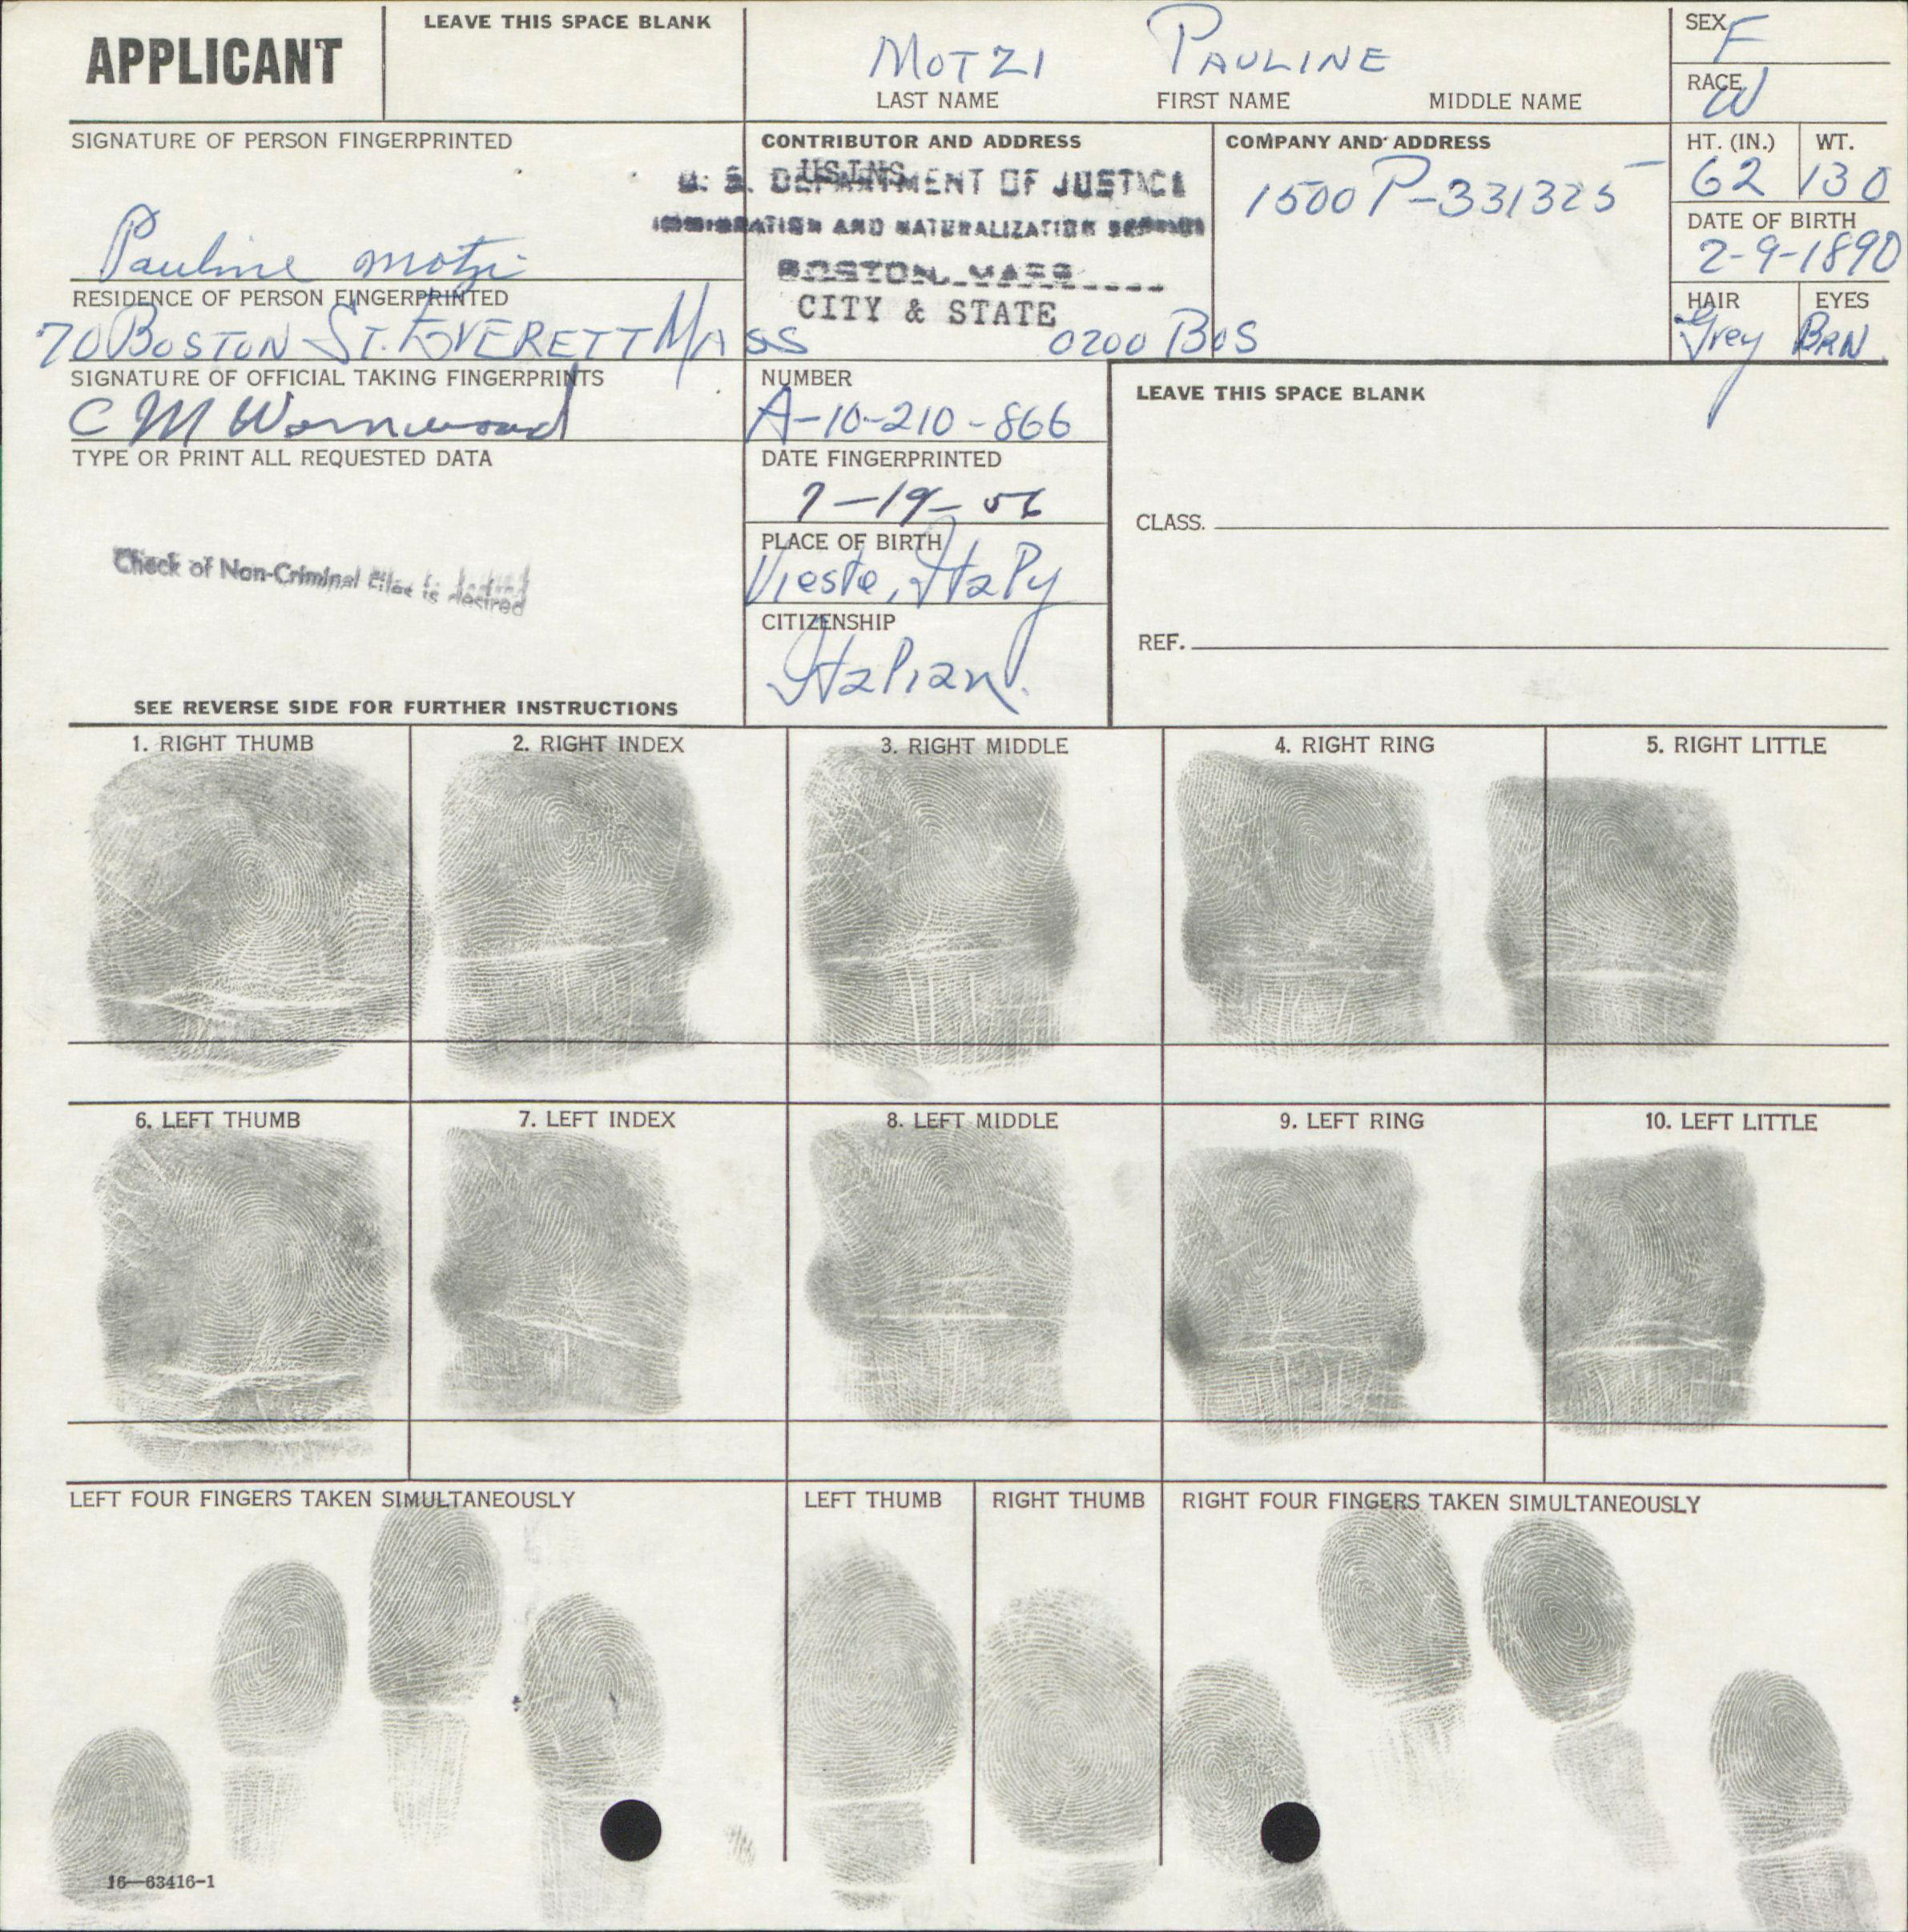 APPLICANT
LEAVE THIS SPACE BLANK
MOTZI PAULINE
LAST NAME FIRST NAME MIDDLE NAME
SEX F
RACE W
SIGNATURE OF PERSON FINGERPRINTED
Pauline Motzi
CONTRIBUTOR AND ADDRESS
USINS
U. S. DEPARTMENT OF JUSTICE
IMMIGRATION AND NATURALIZATION SERVICE
BOSTON, MASS
CITY & STATE
0200 BOS
COMPANY AND ADDRESS
1500 P-331325
HT. (IN.) WT.
62 130
DATE OF BIRTH
2-9-1890
HAIR EYES
Grey BRN.
RESIDENCE OF PERSON FINGERPRINTED
70 BOSTON ST. EVERETT MASS
SIGNATURE OF OFFICIAL TAKING FINGERPRINTS
C M
NUMBER
A-10-210-866
LEAVE THIS SPACE BLANK
TYPE OR PRINT ALL REQUESTED DATA
DATE FINGERPRINTED
7-19-56
CLASS.
Check of Non-Criminal Files is desired
PLACE OF BIRTH
Vieste, Italy
CITIZENSHIP
Italian.
REF.
SEE REVERSE SIDE FOR FURTHER INSTRUCTIONS
1. RIGHT THUMB 2. RIGHT INDEX 3. RIGHT MIDDLE 4. RIGHT RING 5. RIGHT LITTLE
6. LEFT THUMB 7. LEFT INDEX 8. LEFT MIDDLE 9. LEFT RING 10. LEFT LITTLE
LEFT FOUR FINGERS TAKEN SIMULTANEOUSLY LEFT THUMB RIGHT THUMB RIGHT FOUR FINGERS TAKEN SIMULTANEOUSLY
16—63416-1